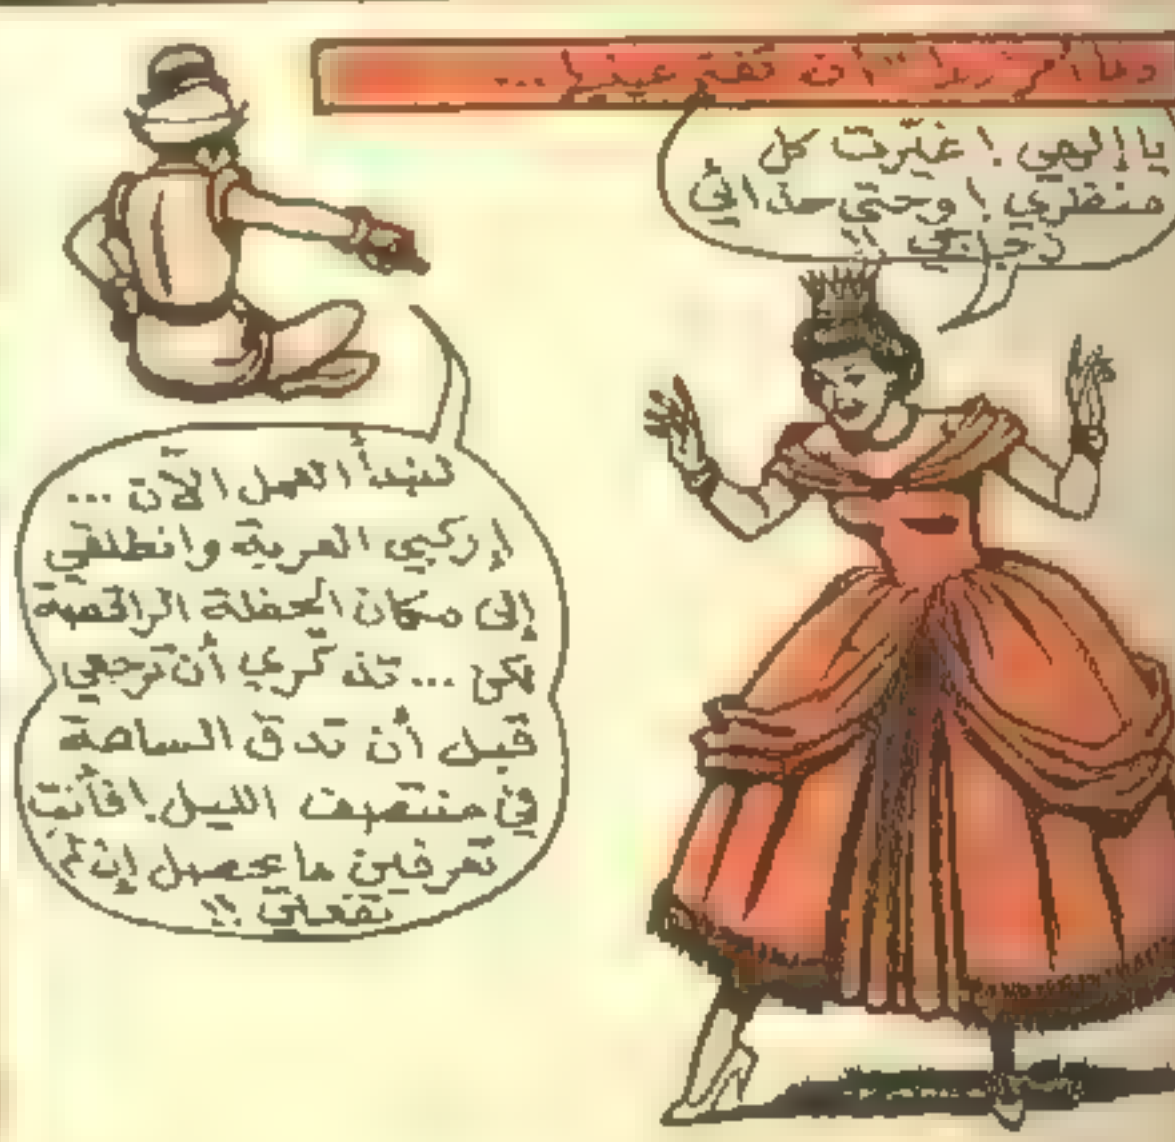 يا إلهي ! غيّرت كل
منظري ! وحتى حذائي
زجاجي !!
لنبدأ العمل الآن ...
إركبي العربة وانطلقي
إلى مكان الحفلة الراقصة
لكن ... تذكّري أن ترجعي
قبل أن تدقّ الساعة
في منتصف الليل ! فأنتِ
تعرفين ما يحصل إن لم
تفعلي !!